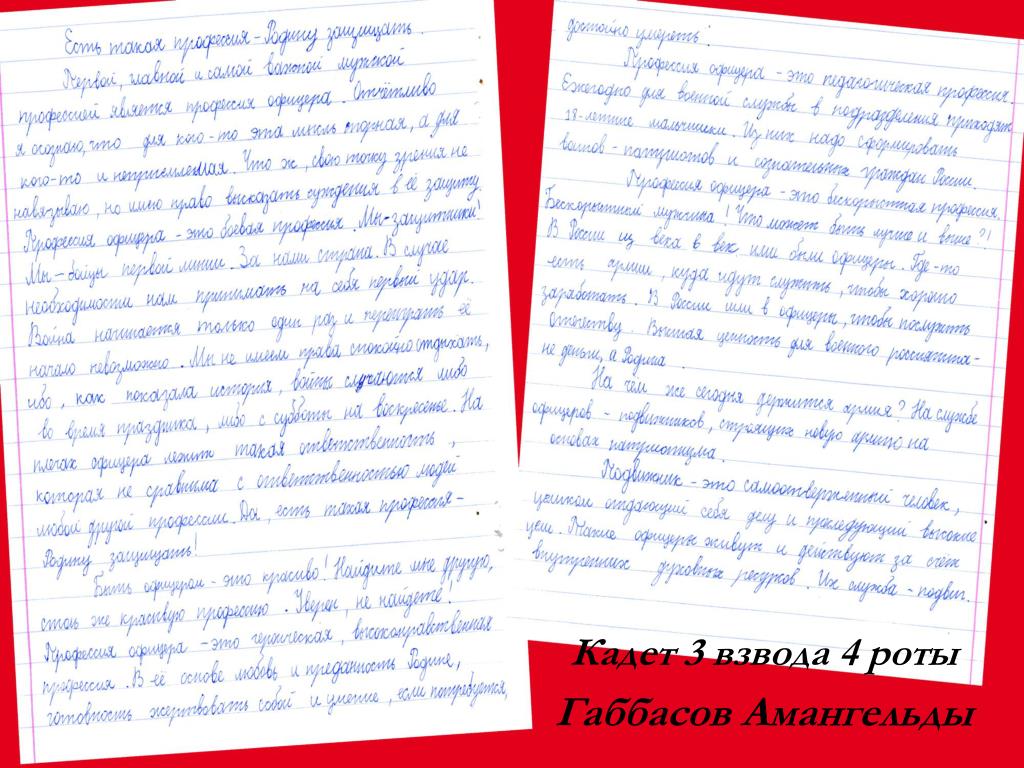 Есть такая профессия - Родину защищать.
Первой, главной и самой важной мужской
профессией является профессия офицера. Отчётливо
я осознаю, что для кого-то эта мысль спорная, а для
кого-то и неприемлемая. Что ж, свою точку зрения не
навязываю, но имею право высказать суждения в её защиту.
Профессия офицера - это боевая профессия. Мы-защитники!
Мы - бойцы первой линии. За нами страна. В случае
необходимости нам принимать на себя первый удар.
Война начинается только один раз и переиграть её
начало невозможно. Мы не имеем права спокойно отдыхать,
ибо, как показала история, войны случаются либо
во время праздника, либо с субботы на воскресенье. На
плечах офицера лежит такая ответственность,
которая не сравнима с ответственностью людей
любой другой профессии. Да, есть такая профессия-
Родину защищать!
Быть офицером - это красиво! Найдите мне другую,
столь же красивую профессию. Уверен, не найдёте!
Профессия офицера - это героическая, высоконравственная
профессия. В её основе любовь и преданность Родине,
готовность жертвовать собой и умение, если потребуется,
достойно умереть.
Профессия офицера - это педагогическая профессия.
Ежегодно для военной службы в подразделения приходят
18-летние мальчишки. Из них надо сформировать
воинов - патриотов и сознательных граждан России.
Профессия офицера - это бескорыстная профессия.
Бескорыстный мужчина! Что может быть лучше и выше?!
В России из века в век ими были офицеры. Где-то
есть армии, куда идут служить, чтобы хорошо
заработать. В России шли в офицеры, чтобы послужить
Отечеству. Высшая ценность для военного россиянина-
не деньги, а Родина.
На чём же сегодня держится армия? На службе
офицеров - подвижников, строящих новую армию на
основах патриотизма.
Подвижник - это самоотверженный человек,
целиком отдающий себя делу и преследующий высокие
цели. Такие офицеры живут и действуют за счёт
внутренних духовных ресурсов. Их служба - подвиг.
Кадет 3 взвода 4 роты
Габбасов Амангельды